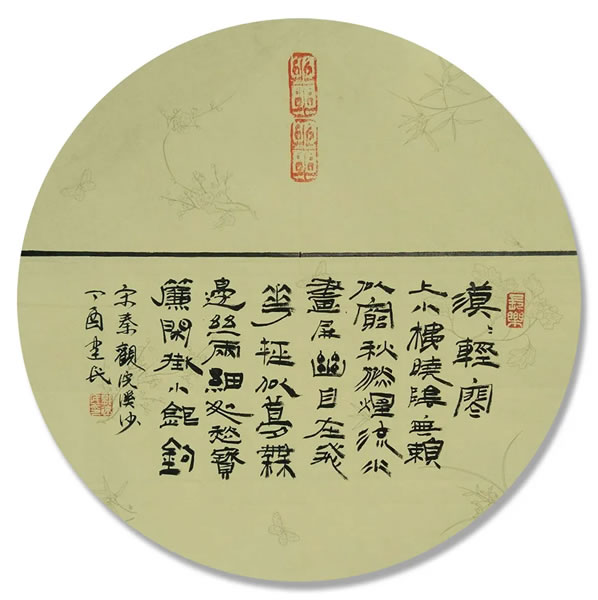 漠〻輕寒
上小樓曉陰無賴
似窮秋淡煙流水
畫屏幽自在飛
花輕似夢無
邊絲雨細如愁寶
簾閑掛小銀鉤
宋秦觀浣溪沙
丁酉建民
長樂